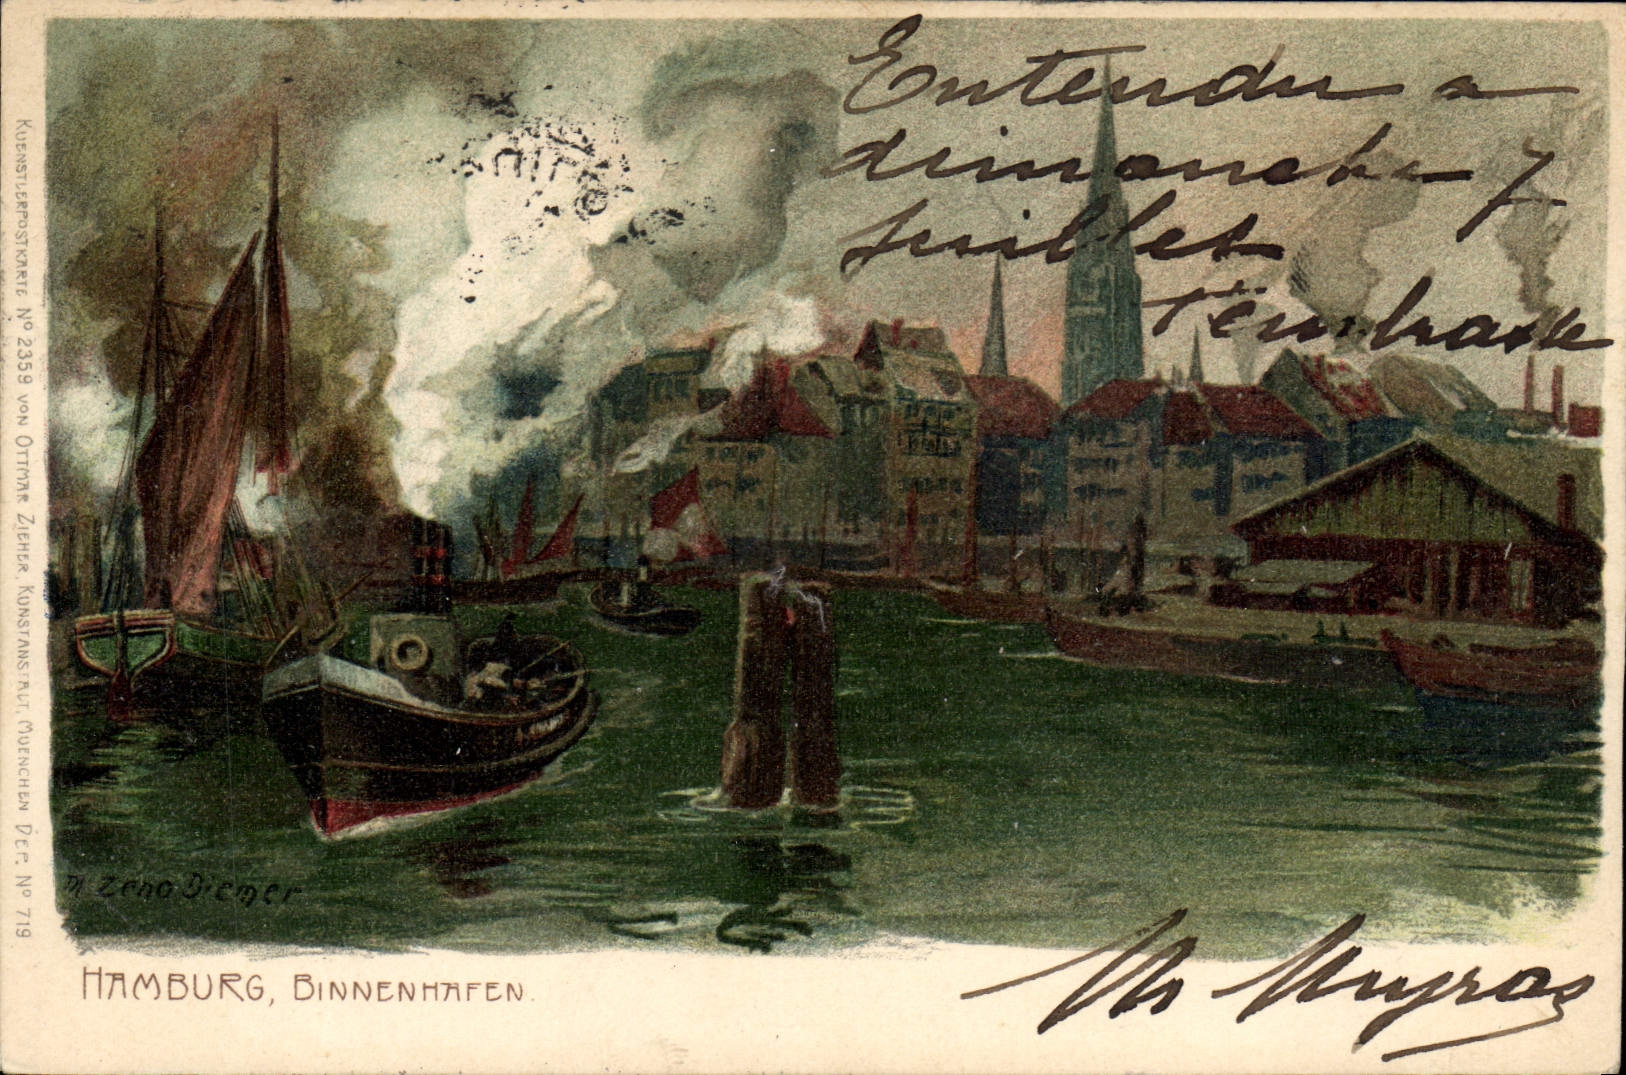 Entendu a
dimanche 7
juillet
t'embrasse
M. Zeno Diemer
HAMBURG, BINNENHAFEN.
KUENSTLERPOSTKARTE No 2359 VON OTTMAR ZIEHER, KUNSTANSTALT, MUENCHEN DEP. No 719